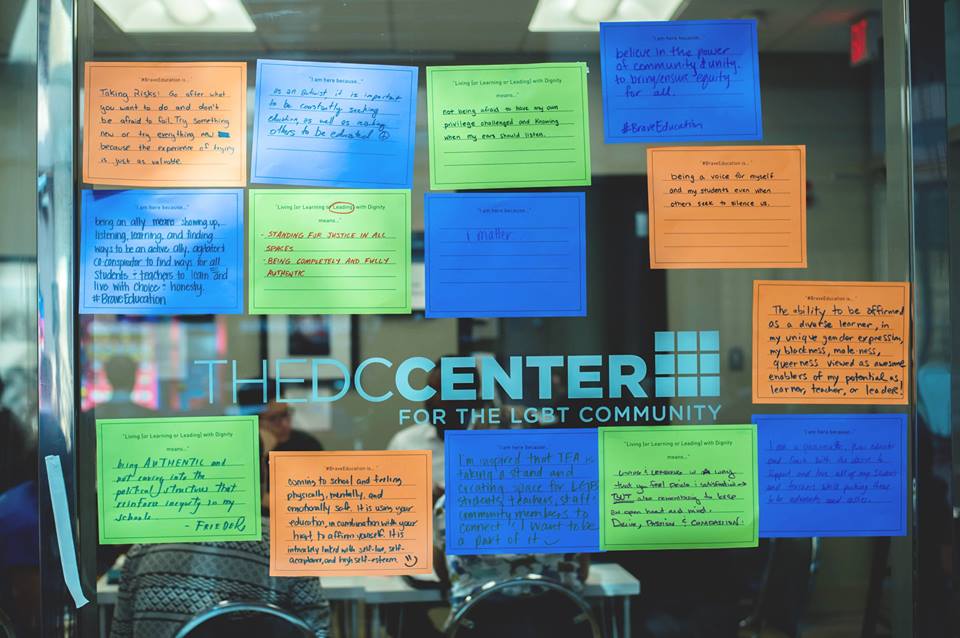 "#BraveEducation is..."
Taking Risks! Go after what
you want to do and don't
be afraid to fail. Try something
new or try everything new
because the experience of trying
is just as valuable.
"I am here because..."
as an activist, it is important
to be constantly seeking
education, as well as
others to be educated
"Living [or Learning or Leading] with Dignity
means..."
not being afraid to have my own
privilege challenged and knowing
when my ears should listen.
"I am here because..."
believe in the power
of community & unity.
to bring/ensure equity
for all.
#BraveEducation
"#BraveEducation is..."
being a voice for myself
and my students even when
others seek to silence us.
"I am here because..."
being an ally means showing up,
listening, learning, and finding
ways to be an active ally,
co-conspirator to find ways for all
students + teachers to learn and
live with choice + honesty.
#BraveEducation
"Living [or Learning or Leading] with Dignity
means..."
- STANDING FOR JUSTICE IN ALL
SPACES
- BEING COMPLETELY AND FULLY
AUTHENTIC
"I am here because..."
I matter.
"#BraveEducation is..."
The ability to be affirmed
as a diverse learner, in
my unique gender expression,
my blackness, male-ness,
queerness viewed as awesome
enablers of my potential as
learner, teacher, or leader!
THEDCCENTER
FOR THE LGBT COMMUNITY
"Living [or Learning or Leading] with Dignity
means..."
being AUTHENTIC and
not caving into the
political structures that
reinforce inequity in my
schools.
"#BraveEducation is..."
Coming to school and feeling
physically, mentally, and
emotionally safe. It is using your
education, in combination with your
heart, to affirm yourself. It is
intricately linked with self-love, self-
acceptance, and high self-esteem.
"I am here because..."
I'm inspired that TFA is
taking a stand and
creating space for LGBT
students, teachers, staff
community members to
connect & I want to be
a part of it
"Living [or Learning or Leading] with Dignity
means..."
that you feel
BUT also remembering to keep
an open heart and mind.
Desire, Passion & Compassion!
"I am here because..."
I am a